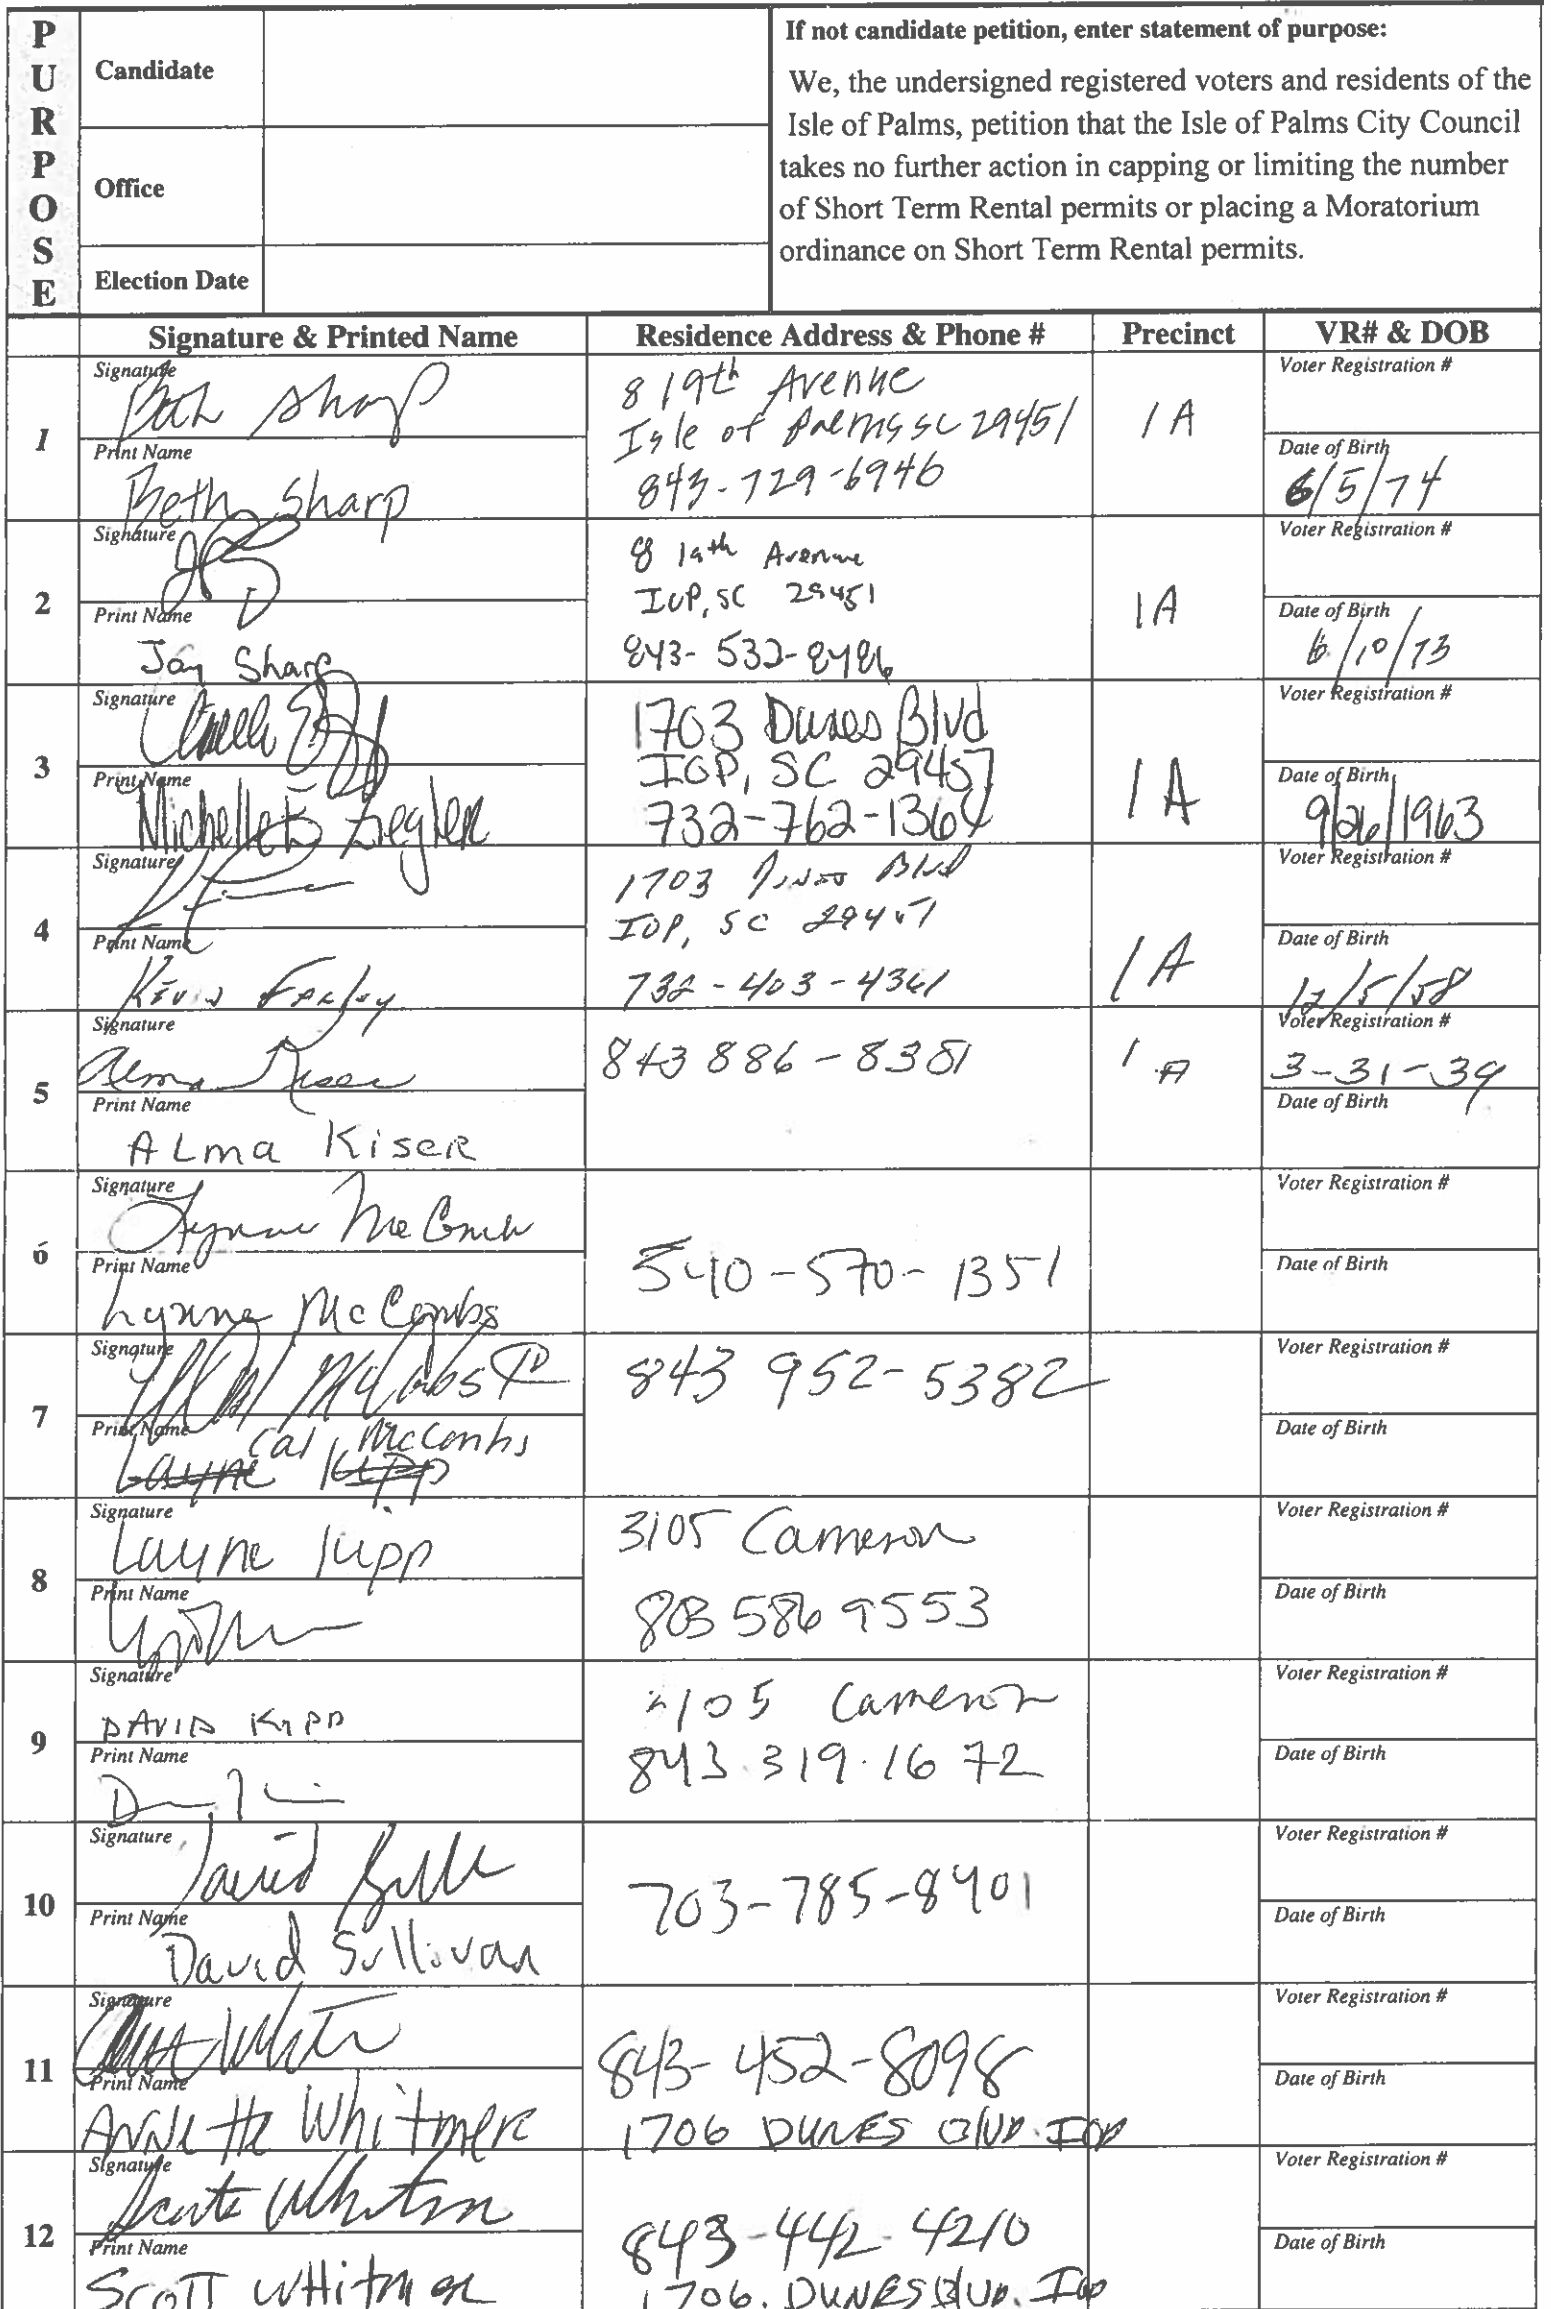 PURPOSE
Candidate
Office
Election Date
If not candidate petition, enter statement of purpose:
We, the undersigned registered voters and residents of the
Isle of Palms, petition that the Isle of Palms City Council
takes no further action in capping or limiting the number
of Short Term Rental permits or placing a Moratorium
ordinance on Short Term Rental permits.
Signature & Printed Name
Residence Address & Phone #
Precinct
VR# & DOB
1
Signature
Beth Sharp
Print Name
Beth Sharp
8 19th Avenue
Isle of Palms SC 29451
843-729-6946
1A
Voter Registration #
Date of Birth
6/5/74
2
Signature
Print Name
Jay Sharp
8 19th Avenue
IOP, SC 29451
843-532-8486
1A
Voter Registration #
Date of Birth
6/10/73
3
Signature
Print Name
Michelle Ziegler
1703 Dunes Blvd
IOP, SC 29451
732-762-1364
1A
Voter Registration #
Date of Birth
9/26/1963
4
Signature
Print Name
Kevin Farley
1703 Dunes Blvd
IOP, SC 29451
732-403-4361
1A
Voter Registration #
Date of Birth
12/5/58
5
Signature
Alma Kiser
Print Name
ALma KiseR
843 886-8381
1 A
Voter Registration #
3-31-39
Date of Birth
6
Signature
Lynne McCombs
Print Name
Lynne McCombs
540-570-1351
Voter Registration #
Date of Birth
7
Signature
Cal McCombs
Print Name
Cal McCombs
Layne Kipp
843 952-5382
Voter Registration #
Date of Birth
8
Signature
Layne Kipp
Print Name
3105 Cameron
803 586 9553
Voter Registration #
Date of Birth
9
Signature
DAVID KIPP
Print Name
3105 Cameron
843.319.1672
Voter Registration #
Date of Birth
10
Signature
David
Print Name
David Sullivan
703-785-8401
Voter Registration #
Date of Birth
11
Signature
Print Name
Annette Whitmer
843-452-8098
1706 DUNES Blvd. IOP
Voter Registration #
Date of Birth
12
Signature
Scott Whitmer
Print Name
Scott Whitmer
843-442-4210
1706. DUNES Blvd. IOP
Voter Registration #
Date of Birth